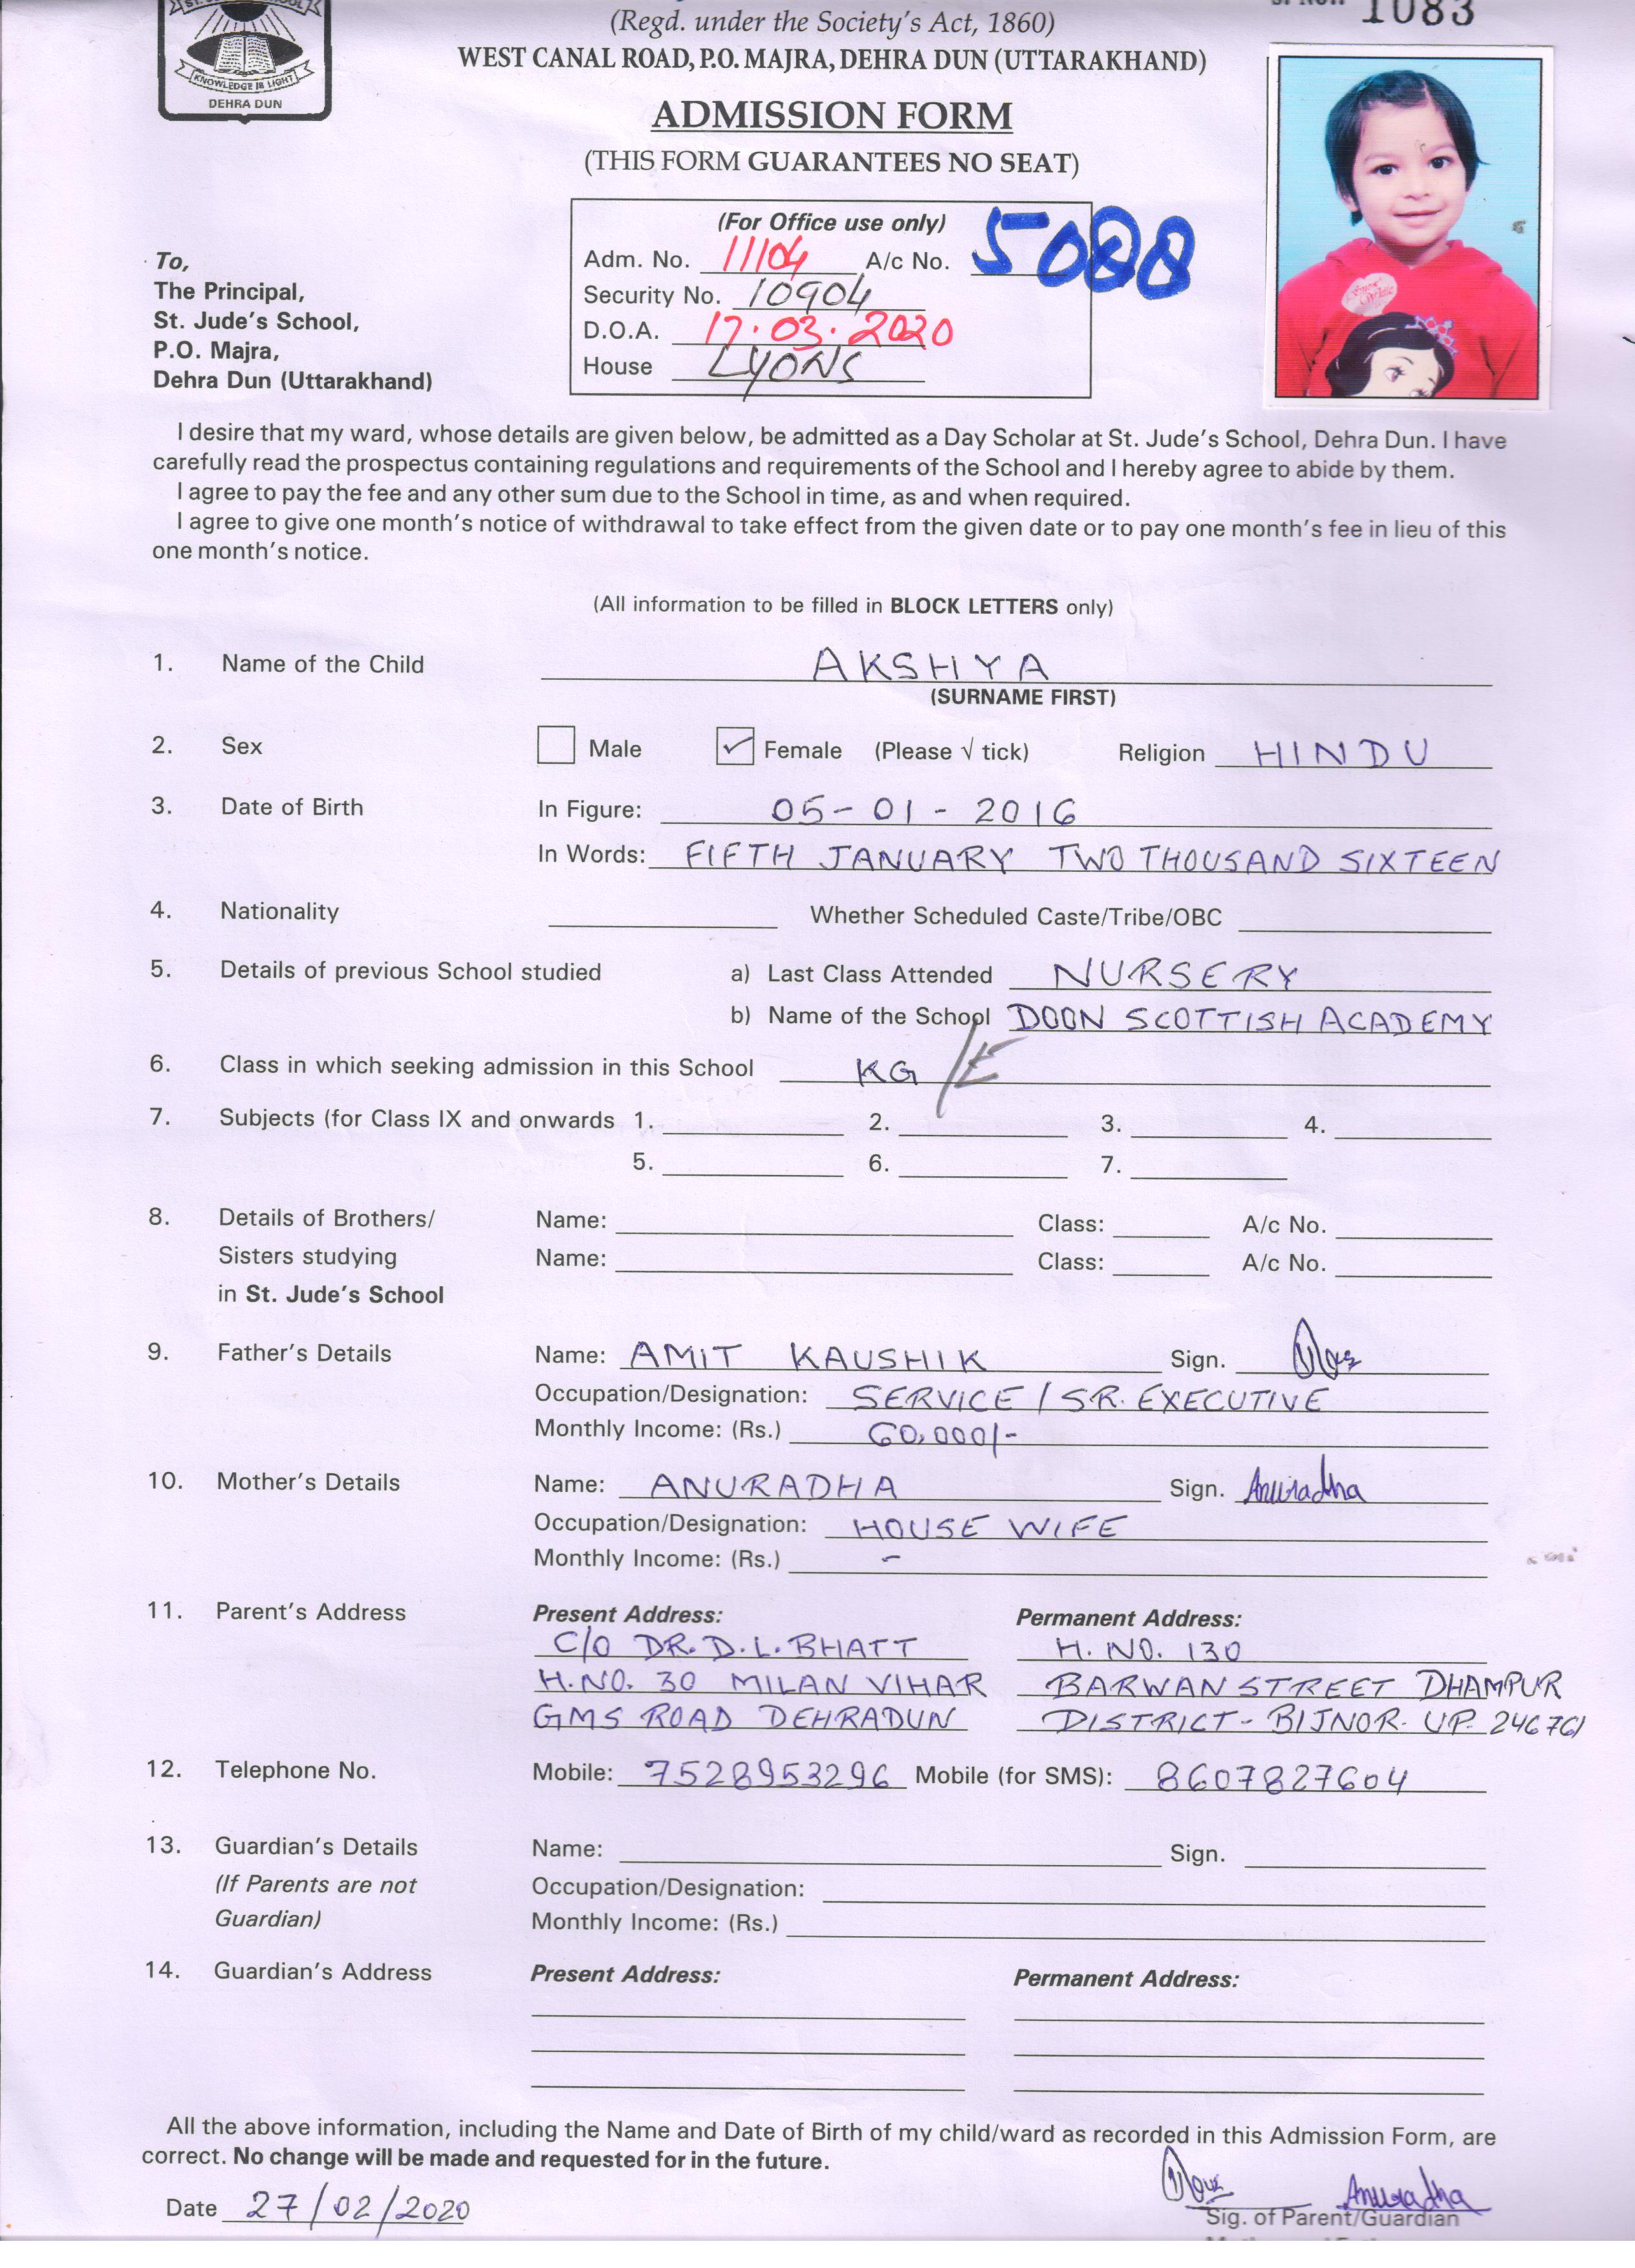 1083
(Regd. under the Society's Act, 1860)
WEST CANAL ROAD, P.O. MAJRA, DEHRA DUN (UTTARAKHAND)
KNOWLEDGE IS LIGHT
DEHRA DUN
ADMISSION FORM
(THIS FORM GUARANTEES NO SEAT)
(For Office use only)
Adm. No. 11104 A/c No. 5088
Security No. 10904
D.O.A. 17.03.2020
House LYONS
To,
The Principal,
St. Jude's School,
P.O. Majra,
Dehra Dun (Uttarakhand)
Snow White
I desire that my ward, whose details are given below, be admitted as a Day Scholar at St. Jude's School, Dehra Dun. I have
carefully read the prospectus containing regulations and requirements of the School and I hereby agree to abide by them.
I agree to pay the fee and any other sum due to the School in time, as and when required.
I agree to give one month's notice of withdrawal to take effect from the given date or to pay one month's fee in lieu of this
one month's notice.
(All information to be filled in BLOCK LETTERS only)
1. Name of the Child AKSHYA
(SURNAME FIRST)
2. Sex Male ✓ Female (Please √ tick) Religion HINDU
3. Date of Birth In Figure: 05-01-2016
In Words: FIFTH JANUARY TWO THOUSAND SIXTEEN
4. Nationality Whether Scheduled Caste/Tribe/OBC
5. Details of previous School studied a) Last Class Attended NURSERY
b) Name of the School DOON SCOTTISH ACADEMY
6. Class in which seeking admission in this School KG /E
7. Subjects (for Class IX and onwards 1. 2. 3. 4.
5. 6. 7.
8. Details of Brothers/ Name: Class: A/c No.
Sisters studying Name: Class: A/c No.
in St. Jude's School
9. Father's Details Name: AMIT KAUSHIK Sign.
Occupation/Designation: SERVICE / SR. EXECUTIVE
Monthly Income: (Rs.) 60,000/-
10. Mother's Details Name: ANURADHA Sign. Anuradha
Occupation/Designation: HOUSE WIFE
Monthly Income: (Rs.) -
11. Parent's Address Present Address: Permanent Address:
C/O DR. D.L. BHATT H. NO. 130
H.NO. 30 MILAN VIHAR BARWAN STREET DHAMPUR
GMS ROAD DEHRADUN DISTRICT - BIJNOR. UP. 246761
12. Telephone No. Mobile: 7528953296 Mobile (for SMS): 8607827604
13. Guardian's Details Name: Sign.
(If Parents are not Occupation/Designation:
Guardian) Monthly Income: (Rs.)
14. Guardian's Address Present Address: Permanent Address:
All the above information, including the Name and Date of Birth of my child/ward as recorded in this Admission Form, are
correct. No change will be made and requested for in the future.
Date 27/02/2020 Anuradha
Sig. of Parent/Guardian